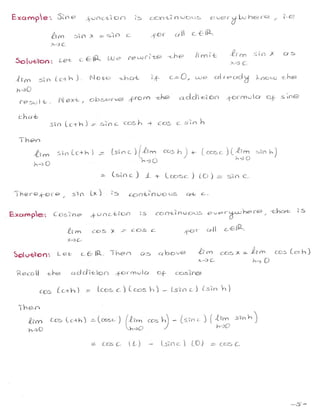 Example: Sine function is continuous everywhere, i.e
lim sin x = sin c for all c ∈ ℝ.
x→c
Solution: Let c ∈ ℝ. We rewrite the limit lim sin x as
x→c
lim sin (c+h). Note that if c=0, we already know the
h→0
result. Next, observe from the addition formula of sine
that
sin (c+h) = sin c cos h + cos c sin h
Then
lim sin (c+h) = (sin c) (lim cos h) + (cos c) (lim sin h)
h→0 h→0 h→0
= (sin c) 1 + (cos c) (0) = sin c.
Therefore, sin (x) is continuous at c.
Example: Cosine function is continuous everywhere, that is
lim cos x = cos c for all c ∈ ℝ.
x→c
Solution: Let c ∈ ℝ. Then as above lim cos x = lim cos (c+h)
x→c h→0
Recall the addition formula of cosine
cos (c+h) = (cos c) (cos h) - (sin c) (sin h)
Then
lim cos (c+h) = (cos c) (lim cos h) - (sin c) (lim sin h)
h→0 h→0 h→0
= cos c (1) - (sin c) (0) = cos c.
-5-